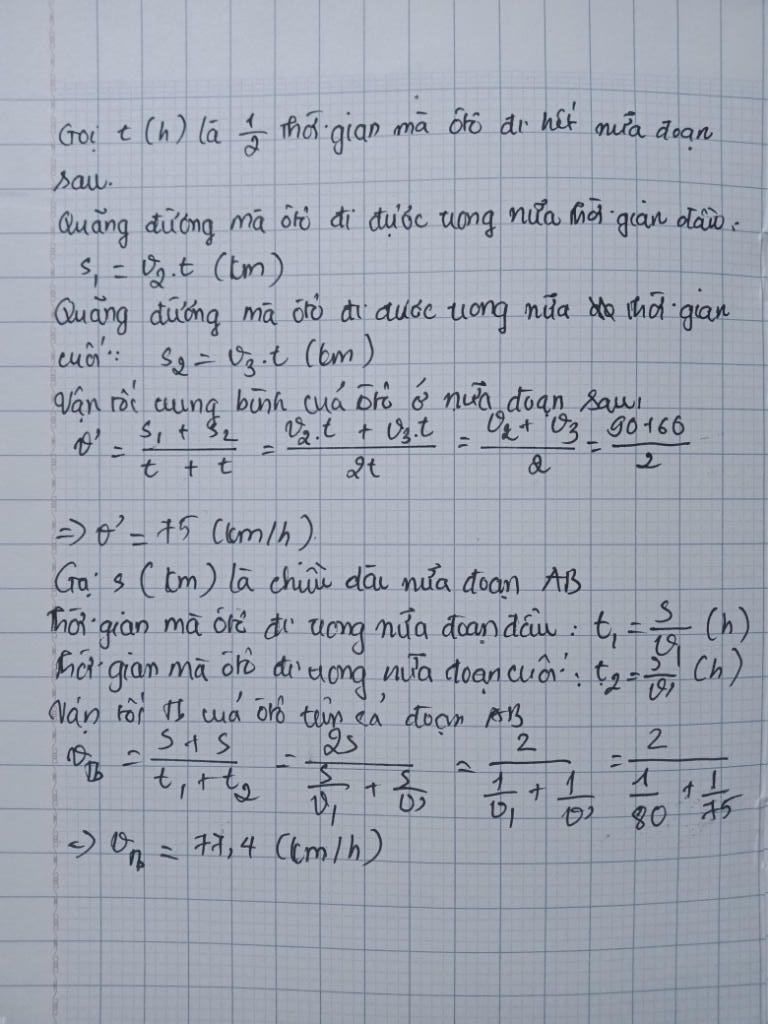 Gọi t (h) là 1/2 thời gian mà ôtô đi hết nửa đoạn
sau.
Quãng đường mà ôtô đi được trong nửa thời gian đầu:
s₁ = v₂.t (km)
Quãng đường mà ôtô đi được trong nửa thời gian
cuối: s₂ = v₃.t (km)
Vận tốc trung bình của ôtô ở nửa đoạn sau:
v' = (s₁ + s₂)/(t + t) = (v₂.t + v₃.t)/2t = (v₂ + v₃)/2 = (90+60)/2
=> v' = 75 (km/h)
Gọi s (km) là chiều dài nửa đoạn AB
Thời gian mà ôtô đi trong nửa đoạn đầu: t₁ = s/v₁ (h)
Thời gian mà ôtô đi trong nửa đoạn cuối: t₂ = s/v' (h)
Vận tốc tb của ôtô trên cả đoạn AB
v_tb = (s + s)/(t₁ + t₂) = 2s/(s/v₁ + s/v') = 2/(1/v₁ + 1/v') = 2/(1/80 + 1/75)
=> v_tb = 77,4 (km/h)